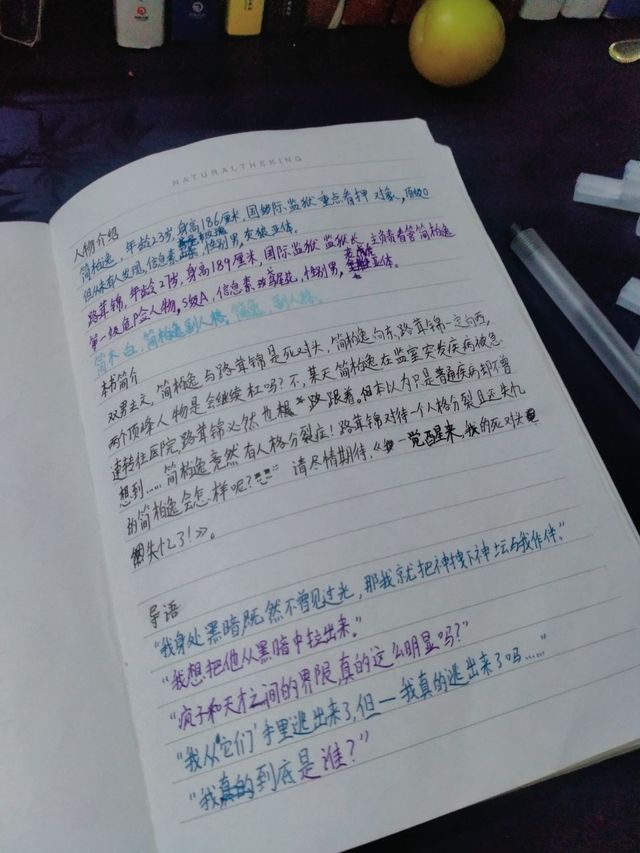 NATURALTHEKING
人物介绍
简柏逸，年龄23岁，身高186厘米，国际监狱重点看押对象，顶级O
但从未有人发现，信息素，性别男，灰狼亚体。
路茸锦，年龄27岁，身高189厘米，国际监狱监狱长，主负责看管简柏逸
第一级危险人物，S级A，信息素，性别男，亚体。
简木白，简柏逸副人格，简逸，副人格。
本书简介
双男主文，简柏逸与路茸锦是死对头，简柏逸向东，路茸锦一定向西，
两个顶峰人物是会继续杠吗？不，某天简柏逸在监室突发疾病被急
速转往医院，路茸锦必然也根一路跟着。但本以为只是普通疾病却不曾
想到……简柏逸竟然有人格分裂症！路茸锦对待一个人格分裂且还失忆
的简柏逸会怎样呢？请尽情期待，《一觉醒来，我的死对头
失忆了！》。
导语
“我身处黑暗，既然不曾见过光，那我就把神拽下神坛与我作伴。”
“我想把他从黑暗中拉出来。”
“疯子和天才之间的界限，真的这么明显吗？”
“我从‘它们’手里逃出来了，但——我真的逃出来了吗……”
“我真的到底是谁？”